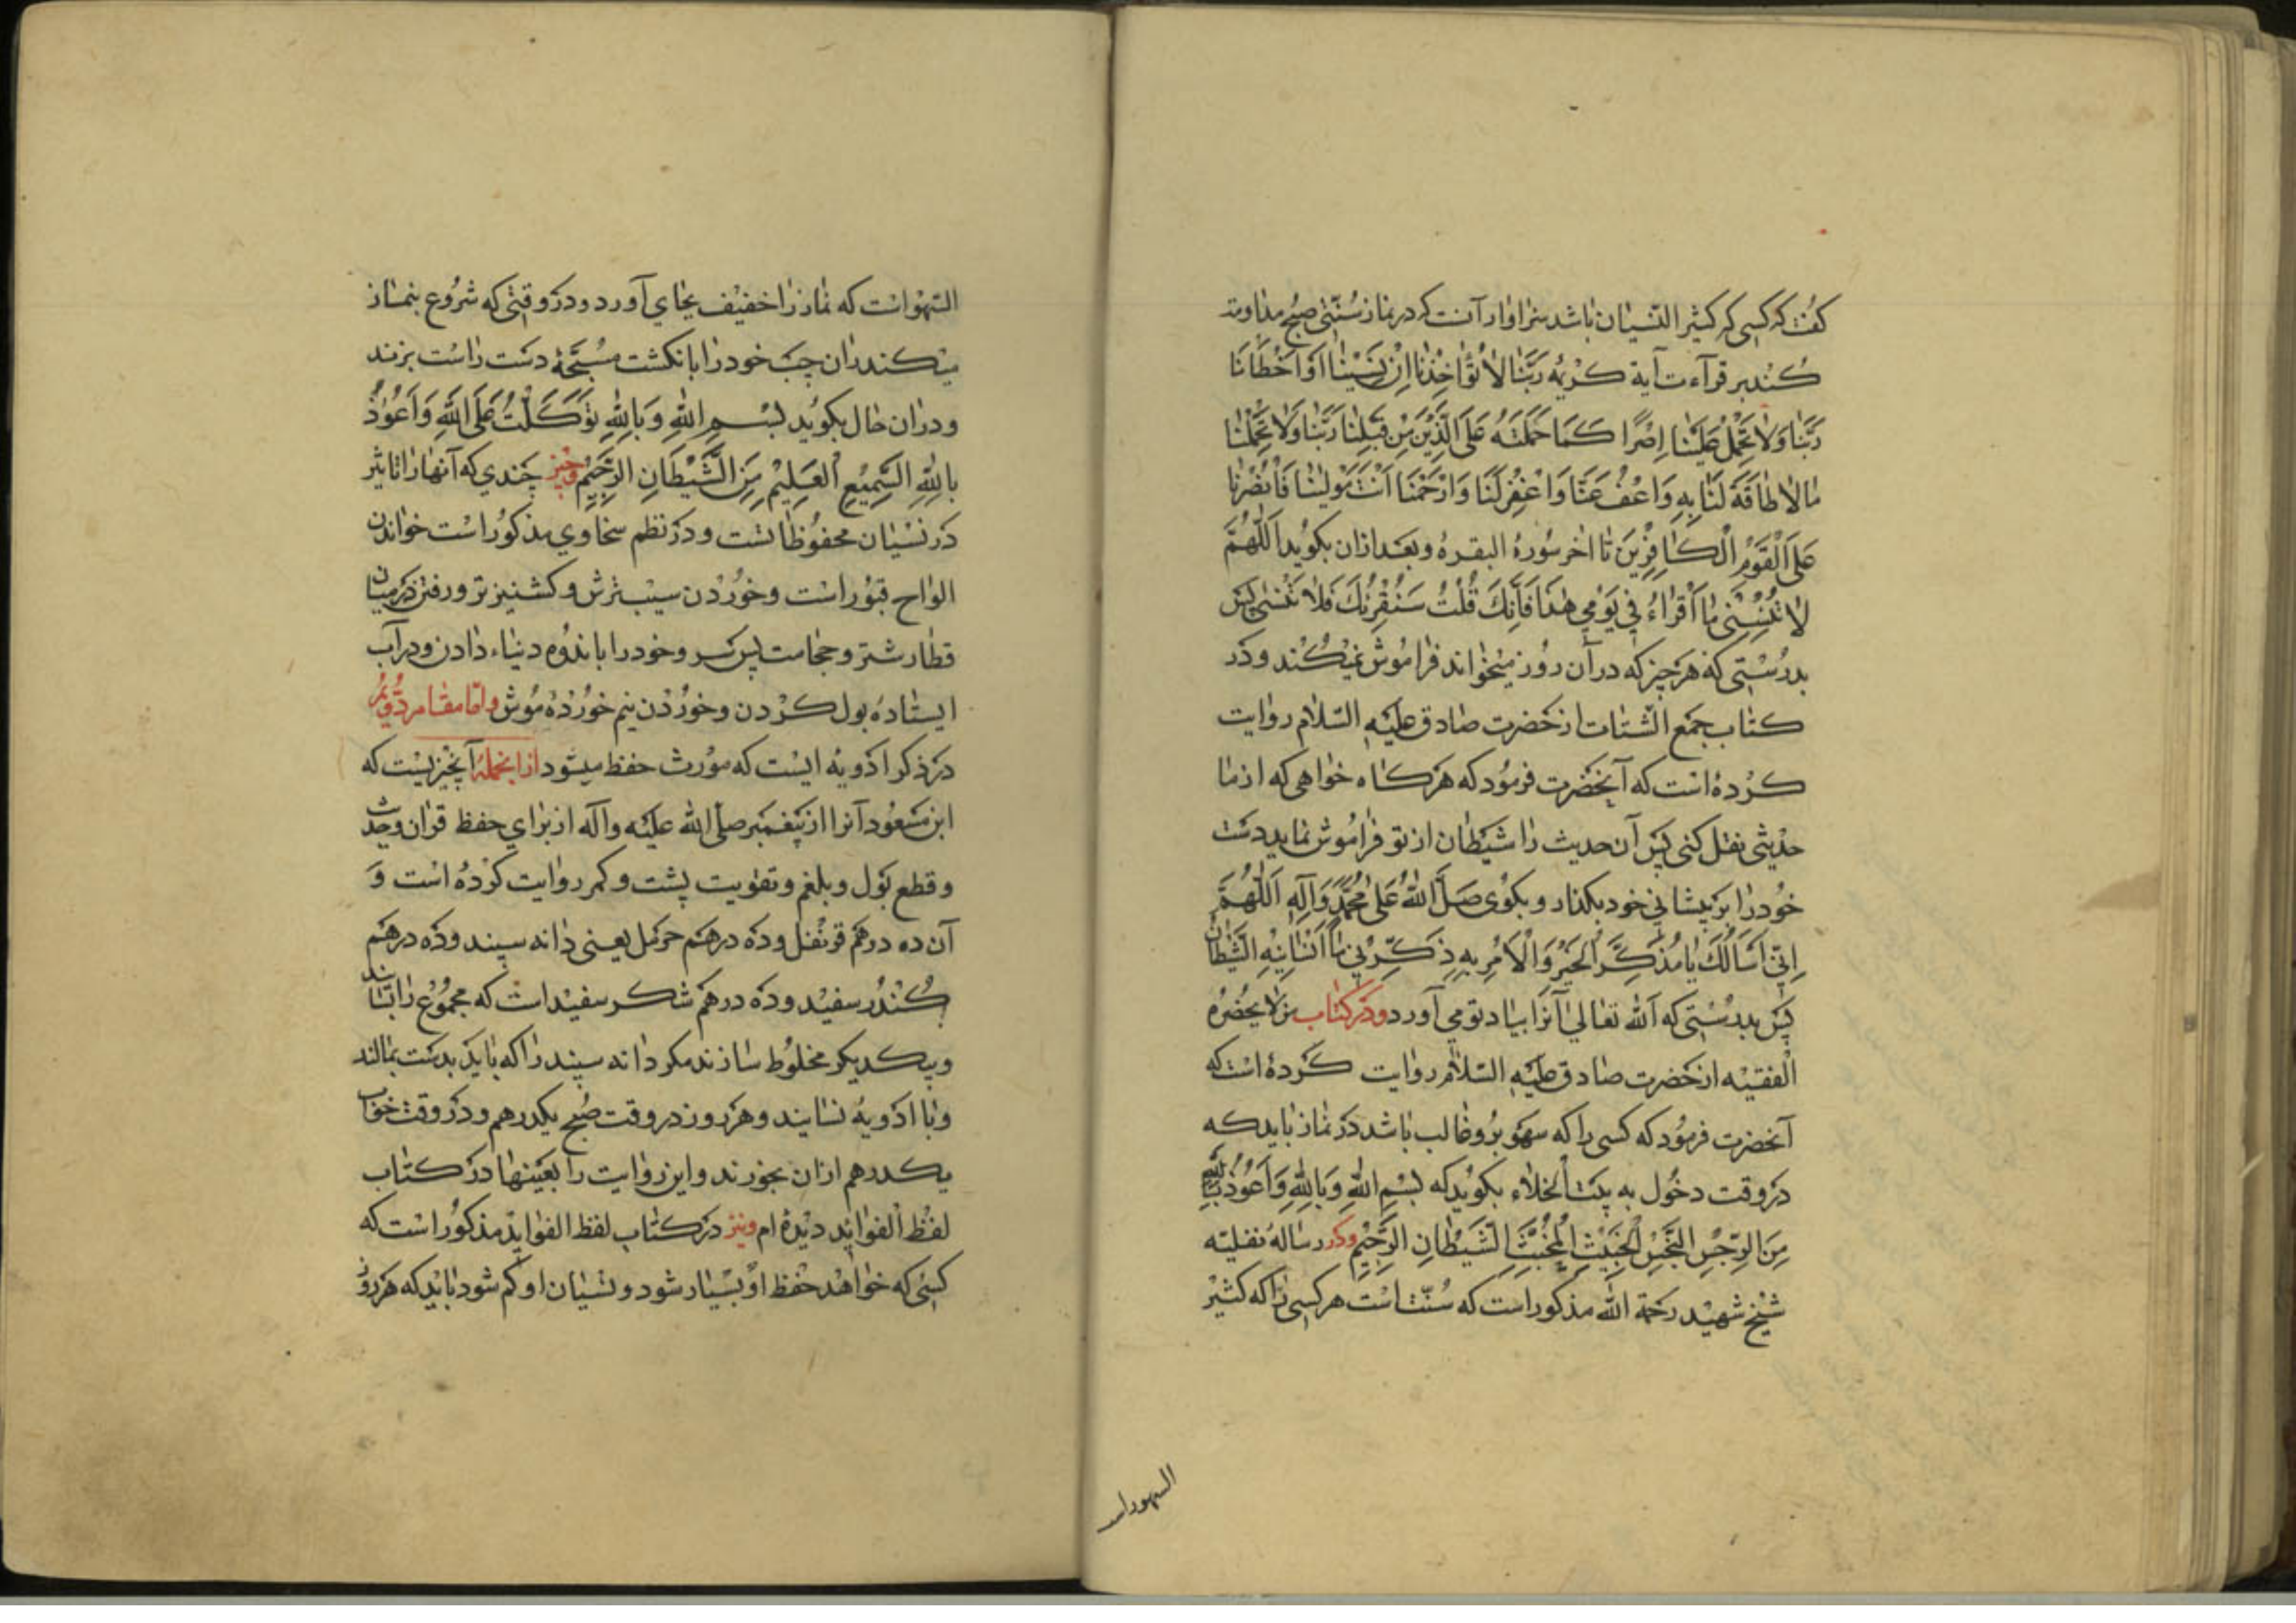 کفت که کسی که کثیر النسیان باشد سزاوار آنست که در نماز سنتی صبح مداومت
کُند بر قرآءت آیة کریمه رَبَّنَا لَا تُؤَاخِذْنَا اِنْ نَسِیْنَا اَوْ اَخْطَأْنَا
رَبَّنَا وَلَا تَحْمِلْ عَلَیْنَا اِصْرًا کَمَا حَمَلْتَهُ عَلَی الَّذِیْنَ مِنْ قَبْلِنَا رَبَّنَا وَلَا تُحَمِّلْنَا
مَا لَا طَاقَةَ لَنَا بِهِ وَاعْفُ عَنَّا وَاغْفِرْ لَنَا وَارْحَمْنَا اَنْتَ مَوْلَیٰنَا فَانْصُرْنَا
عَلَی الْقَوْمِ الْکَافِرِیْنَ تا اخر سُورهٔ البقره و بعد ازان بکوید اَللّٰهُمَّ
لَا تُنْسِنِی مَا اَقْرَاءُ فِی یَوْمِی هٰذَا فَاِنَّکَ قُلْتَ سَنُقْرِئُکَ فَلَا تَنْسٰی پس
بدرُستی که هرچیز که در آن روز میخواند فراموش نمیکند و در
کتاب جمع الشتات از حَضرت صادق علیه السّلام روایت
کرده است که آنحَضرت فرمود که هرکاه خواهی که از ما
حدیثی نقل کنی پس آن حدیث را شیطان از تو فراموش نماید دست
خود را بر پیشانی خود بکذار و بکوی صَلَّی اللّٰهُ عَلیٰ مُحَمَّدٍ وَآلِهِ اَللّٰهُمَّ
اِنِّی اَسْاَلُکَ یَا مُذَکِّرَ الْخَیْرِ وَالْاٰمِرِ بِهِ ذَکِّرْنِی مَا اَنْسَانِیْهِ الشَّیْطَانُ
پس بدرُستی که اللّٰه تعالی آنرا بیاد تو می آورد و در کتاب من لا یحضُرُه
الفقیه از حَضرت صادق علیه السّلام روایت کرده است که
آنحضرت فرمود که کسی را که سهو برو غالب باشد در نماز باید که
در وقت دخول به بیت الخلاء بکوید که بِسْمِ اللّٰهِ وَ بِاللّٰهِ وَاَعُوْذُ بِاللّٰهِ
مِنَ الرِّجْسِ النَّجِسِ الْخَبِیْثِ الْمُخْبِثِ الشَّیْطَانِ الرَّجِیْمِ و در رساله نفلیّه
شیخ شهید رحمة اللّٰه مذکور است که سُنّت است هر کسی را که کثیر
السهو است
السّهو است که نماز را خفیف بجای آورد و در وقتی که شروع بنماز
میکند ران چپ خود را بانکشت مسبّحهٔ دست راست بزند
و دران حال بکوید بِسْمِ اللّٰهِ وَ بِاللّٰهِ تَوَکَّلْتُ عَلَی اللّٰهِ وَ اَعُوذُ
بِاللّٰهِ السَّمِیْعِ الْعَلِیْمِ مِنَ الشَّیْطَانِ الرَّجِیْمِ و چیز چندی که آنها را تاثیر
در نسیان محفوظ است و در نظم سخاوی مذکور است خواندن
الواح قبور است و خوردن سیب ترش و کشنیز تر و رفتن در میان
قطار شتر و حجامت پس سر و خود را باندوه دنیاء دادن و در آب
ایستاده بول کردن و خوردن نیم خوردهٔ موش و امّا مقام دوّیم
در ذکر ادویه ایست که مورث حفظ میشود ازانجمله آنچیزیست که
ابن مسعود آنرا از پیغمبر صلّی اللّٰه علیه و آله از برای حفظ قرآن و حدیث
و قطع بول و بلغم و تقویت پشت و کمر روایت کرده است وَ
آن ده درهم قرنفل و ده درهم حرمل یعنی دانه سپند و ده درهم
کُندُر سفید و ده درهم شکر سفید است که مجموع را بسایند
و بیکدیکر مخلوط سازند مکر دانه سپند را که باید بدست بمالند
و با ادویه نسایند و هر روز در وقت صُبح یکدرهم و در وقت خواب
یکدرهم ازان بخورند و این روایت را بعینها در کتاب
لفظ الفوائد دیده ام و نیز در کتاب لفظ الفوائد مذکور است که
کسی که خواهد حفظ او بسیار شود و نسیان او کم شود باید که هر روز